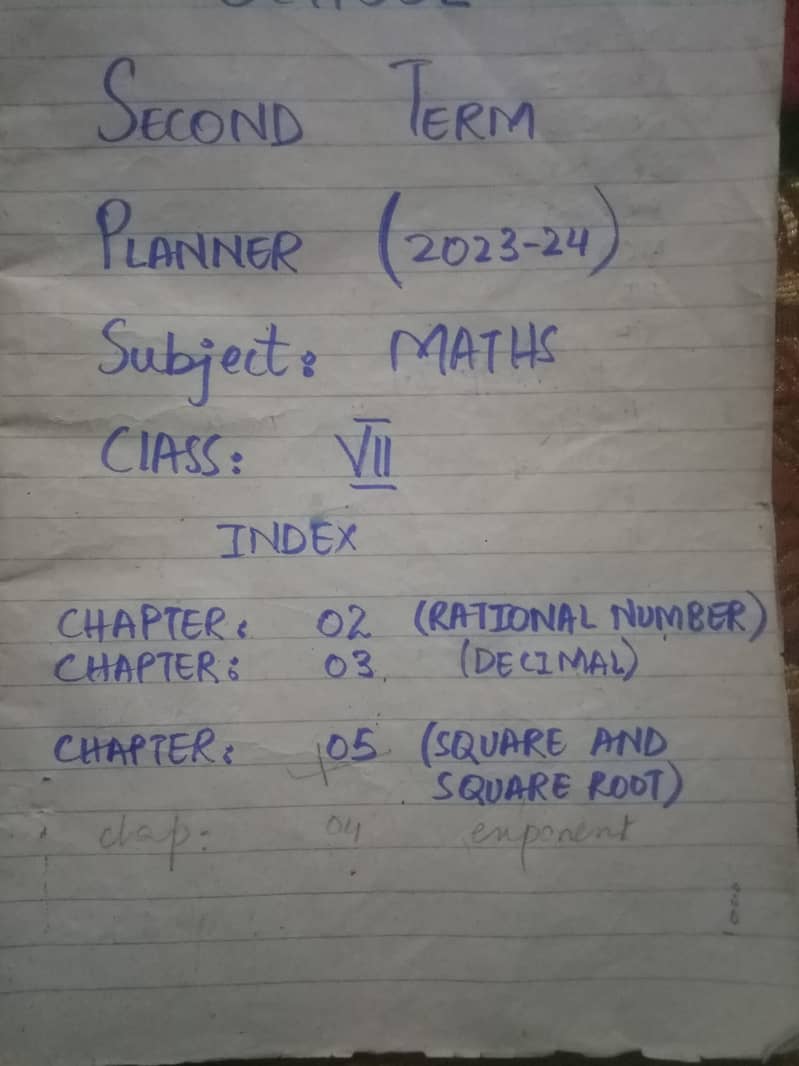 SCHOOL
SECOND TERM
PLANNER (2023-24)
Subject: MATHS
ClASS: VII
INDEX
CHAPTER: 02 (RATIONAL NUMBER)
CHAPTER: 03 (DECIMAL)
CHAPTER: 05 (SQUARE AND
SQUARE ROOT)
chap: 04 exponent